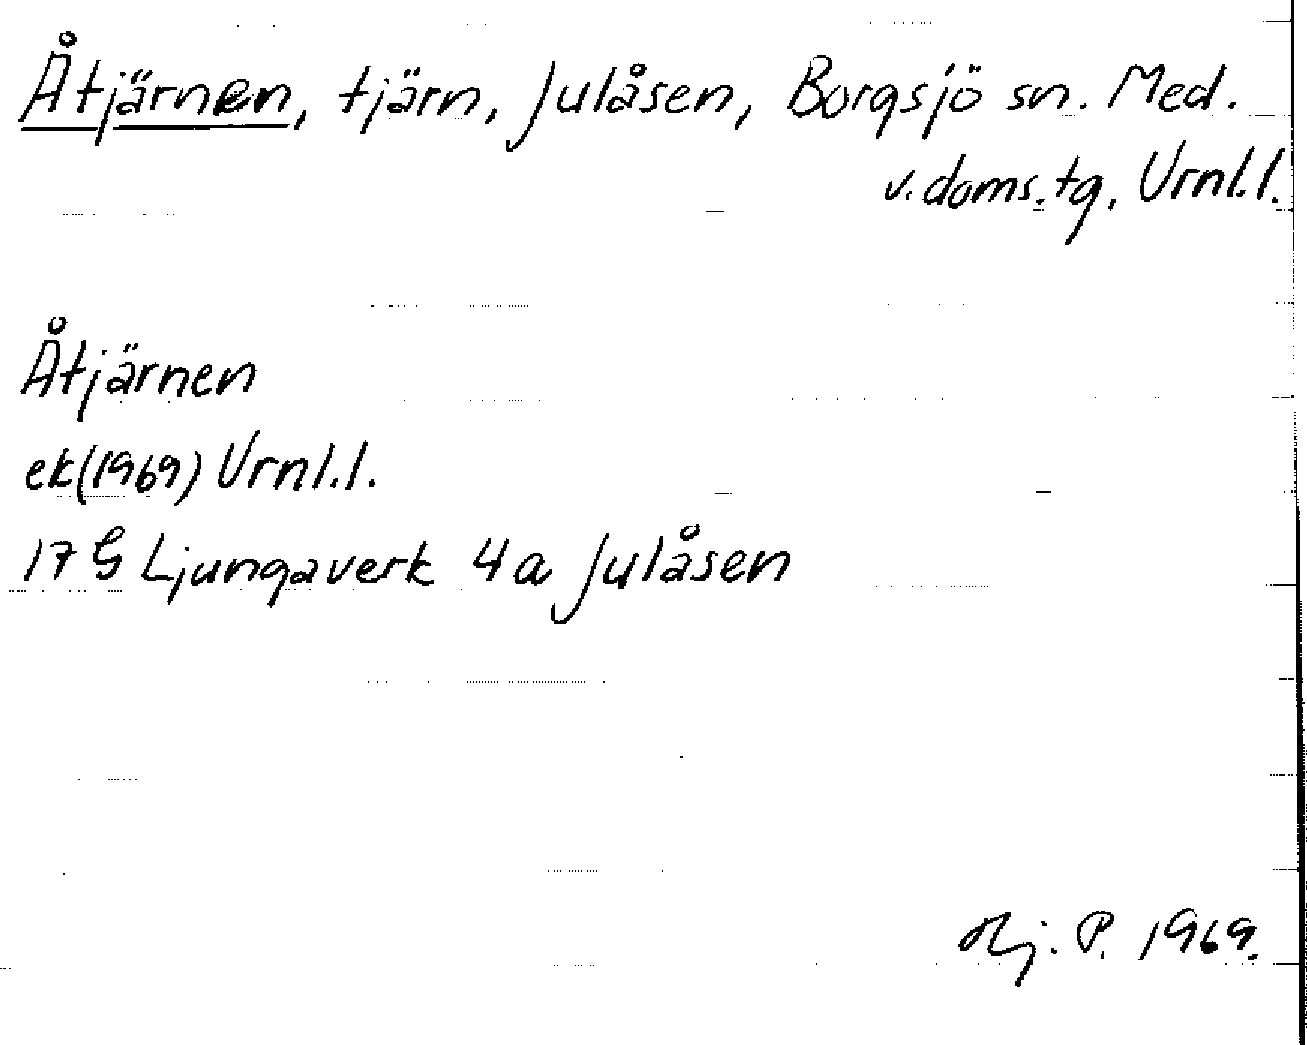 Åtjärnen, tjärn, Julåsen, Borgsjö sn. Med.
v. doms. tg. Urnl.l.
Åtjärnen
ek(1969) Urnl.l.
17 G Ljungaverk 4a Julåsen
Hj. P. 1969.